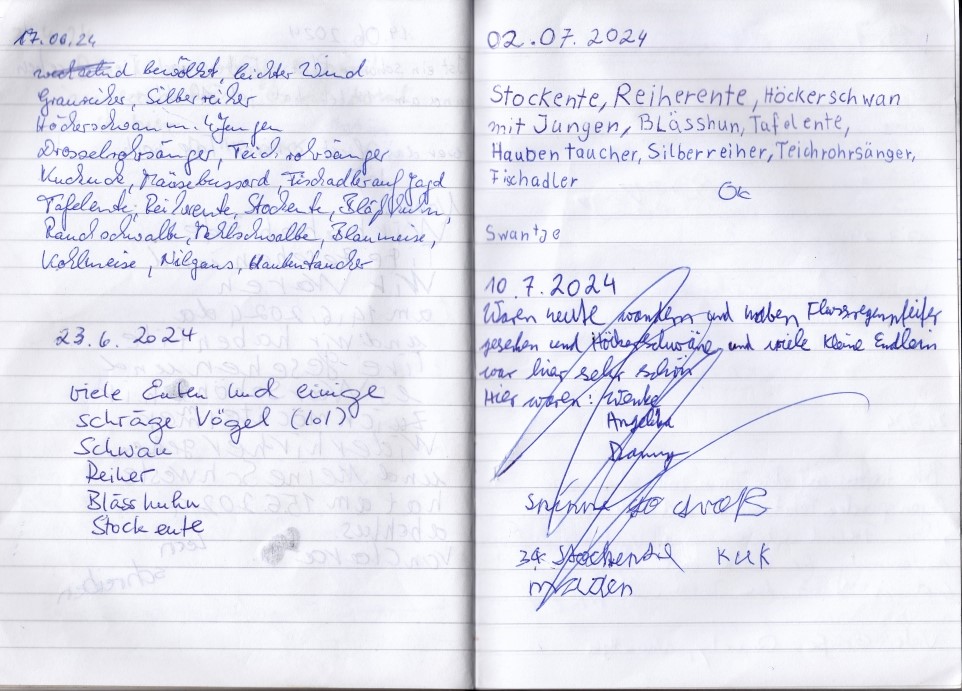 17.06.24
wechselnd bewölkt, leichter Wind
Graureiher, Silberreiher
Höckerschwan m. 4 Jungen
Drosselrohrsänger, Teichrohrsänger
Kuckuck, Mäusebussard, Fischadler auf Jagd
Tafelente, Reiherente, Stockente, Bläßhuhn,
Rauchschwalbe, Mehlschwalbe, Blaumeise,
Kohlmeise, Nilgans, Haubentaucher
23.6.2024
viele Enten und einige
schräge Vögel (lol)
Schwan
Reiher
Blässhuhn
Stockente
02.07.2024
Stockente, Reiherente, Höckerschwan
mit Jungen, Blässhun, Tafelente,
Haubentaucher, Silberreiher, Teichrohrsänger,
Fischadler
Swantje
10.7.2024
Waren heute wandern und haben Flussregenpfeifer
gesehen und Höckerschwäne und viele kleine Endlein
war hier sehr schön
Hier waren: Wenke
Angelika
Danny
Spinne so groß
34 Stockente KuK
maden